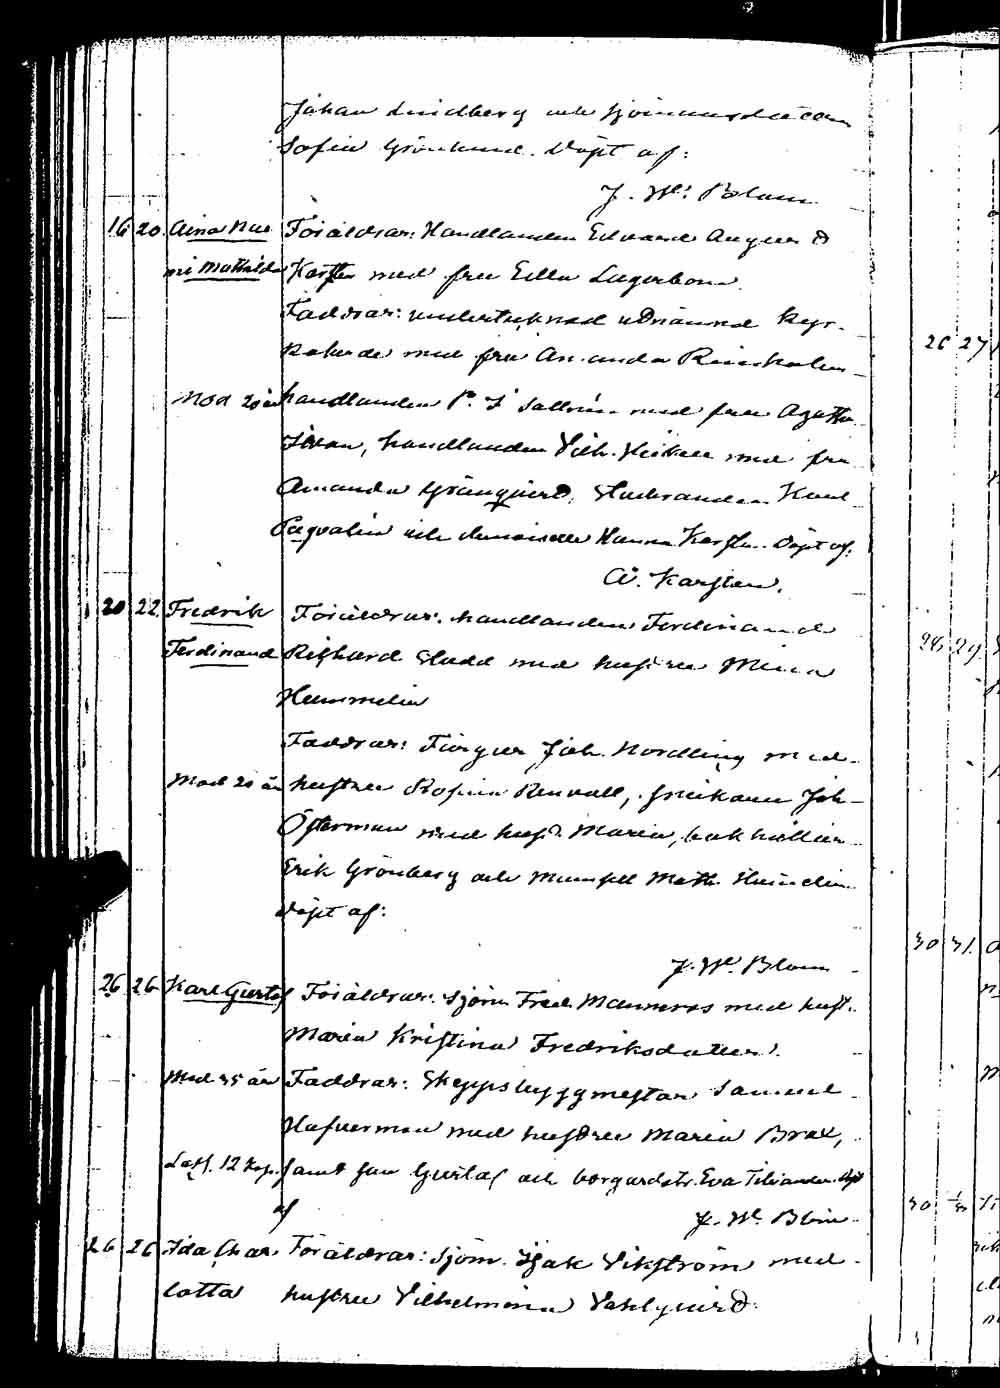 Johan Lindberg och sjömansdottern
Sofia Grönlund. Döpt af:
J. Wl. Blom
16 20. Aina Nao Föräldrar: Handlanden Edvard August
mi Mathilda Karsten med fru Edla Lagerbom
Faddrar: undertecknad kyr-
med fru Amanda
Mod 20 år handlanden P. J. med fru Agatha
handlanden Vilh. Heikell med fru
Amanda Grönqvist, Studeranden Karl
och demoiselle Hanna Karsten. Döpt af:
A. Karsten.
20 22. Fredrik Föräldrar: handlanden Ferdinand
Ferdinand Rikhard Stadd med hustru Mina
Hummelin
Faddrar: Färgar Joh. Nordling med
Mod 20 år hustru Rosina Renvall, snickare Joh
Österman med hust. Maria, bokhållar
Erik Grönberg och Mamsell Math.
Döpt af:
J. Wl. Blom
26 26 Karl Gustaf Föräldrar: Sjöm Fred. Mannros med hust.
Maria Kristina Fredriksdotter.
Mod 35 år Faddrar: Skeppsbyggmestar Samuel
Hafverman med hustru Maria Brax,
Lösf. 12 kop. samt son Gustaf och borgardotr. Eva Tilvander. döpt
af J. Wl. Blom
26 26 Ida Char Föräldrar: Sjöm. Isak Vikström med
lotta hustru Vilhelmina Dahlqvist.
26 27
28 29
30 31.
30